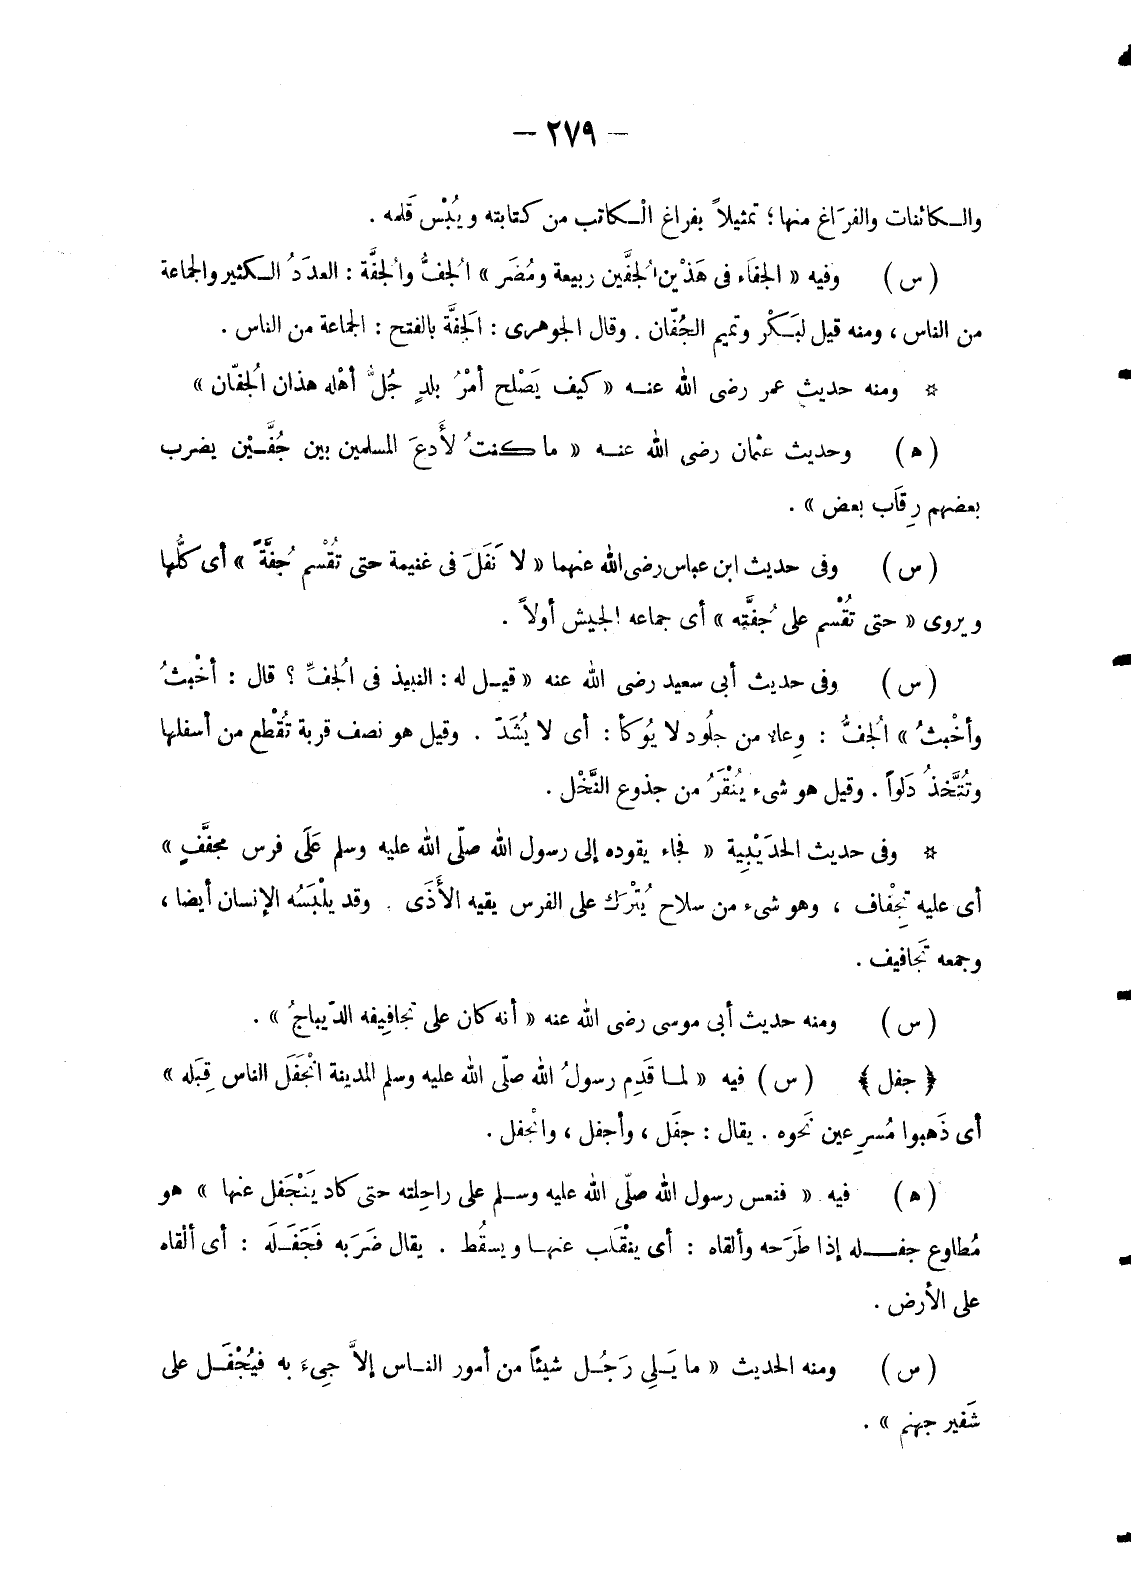 — ٢٧٩ —
والـكائنات والفرَاغ منها؛ تمثيلاً بفراغ الْـكاتب من كتابته ويُبْس قَلمه .
(س) وفيه « الجفَاء فى هَذْين الُجفَّين ربيعة ومُضَر » الُجفُّ والُجفَّة : العدَدُ الـكثير والجماعة
من الناس ، ومنه قيل لبَـكْر وتميم الجُفّان . وقال الجوهرى : الَجفَّة بالفتح : الجماعة من الناس .
* ومنه حديث عمر رضى الله عنـه « كيف يَصْلح أمْرُ بلدٍ جُلُّ أهْله هذان الُجفّان »
(ه) وحديث عثمان رضى الله عنـه « ما كنتُ لأَدعَ المسلمين بين جُفَّـيْن يضرب
بعضهم رِقَاب بعض » .
(س) وفى حديث ابن عباس رضى الله عنهما « لا نَفَلَ فى غنيمة حتى تُقْسم جُفَّةً » أى كلُّها
ويروى « حتى تُقْسم على جُفَّته » أى جماعه الجيش أولاً .
(س) وفى حديث أبى سعيد رضى الله عنه « قيـل له : النبيذ فى الُجفِّ ؟ قال : أخْبثُ
وأخْبثُ » الُجفُّ : وِعاء من جلُود لا يُوكأ : أى لا يُشَدّ . وقيل هو نصف قربة تُقْطع من أسفلها
وتُتَّخذُ دَلواً . وقيل هو شىء يُنْقَرُ من جذوع النَّخْل .
* وفى حديث الحدَيْبِية « فجاء يقوده إلى رسول الله صلّى الله عليه وسلم عَلَى فرس مجفَّفٍ »
أى عليه تِجْفاف ، وهو شىء من سلاح يُتْرَك على الفرس يقيه الأَذَى . وقد يلْبَسُه الإنسان أيضا ،
وجمعه تَجَافيف .
(س) ومنه حديث أبى موسى رضى الله عنه « أنه كان على تجافِيفه الدّيباجُ » .
﴿ جفل ﴾ (س) فيه « لمـا قَدِم رسولُ الله صلّى الله عليه وسلم المدينة انْجَفَلَ الناس قِبَله »
أى ذَهبوا مُسرِعين نَحوه . يقال : جفَل ، وأجفل ، وانْجفل .
(ه) فيه « فنعس رسول الله صلّى الله عليه وسـلم على راحِلته حتى كاد يَنْجَفل عنها » هو
مُطاوع جفـــله إذا طَرَحه وألقاه : أى ينقَلب عنهـا ويسقُط . يقال ضَرَبه فَجَفَـلَه : أى ألْقاه
على الأرض .
(س) ومنه الحديث « ما يَـلِى رَجُـل شيئاً من أمور النـاس إلاَّ جىءَ به فيُجْفَـل على
شَفير جهنم » .